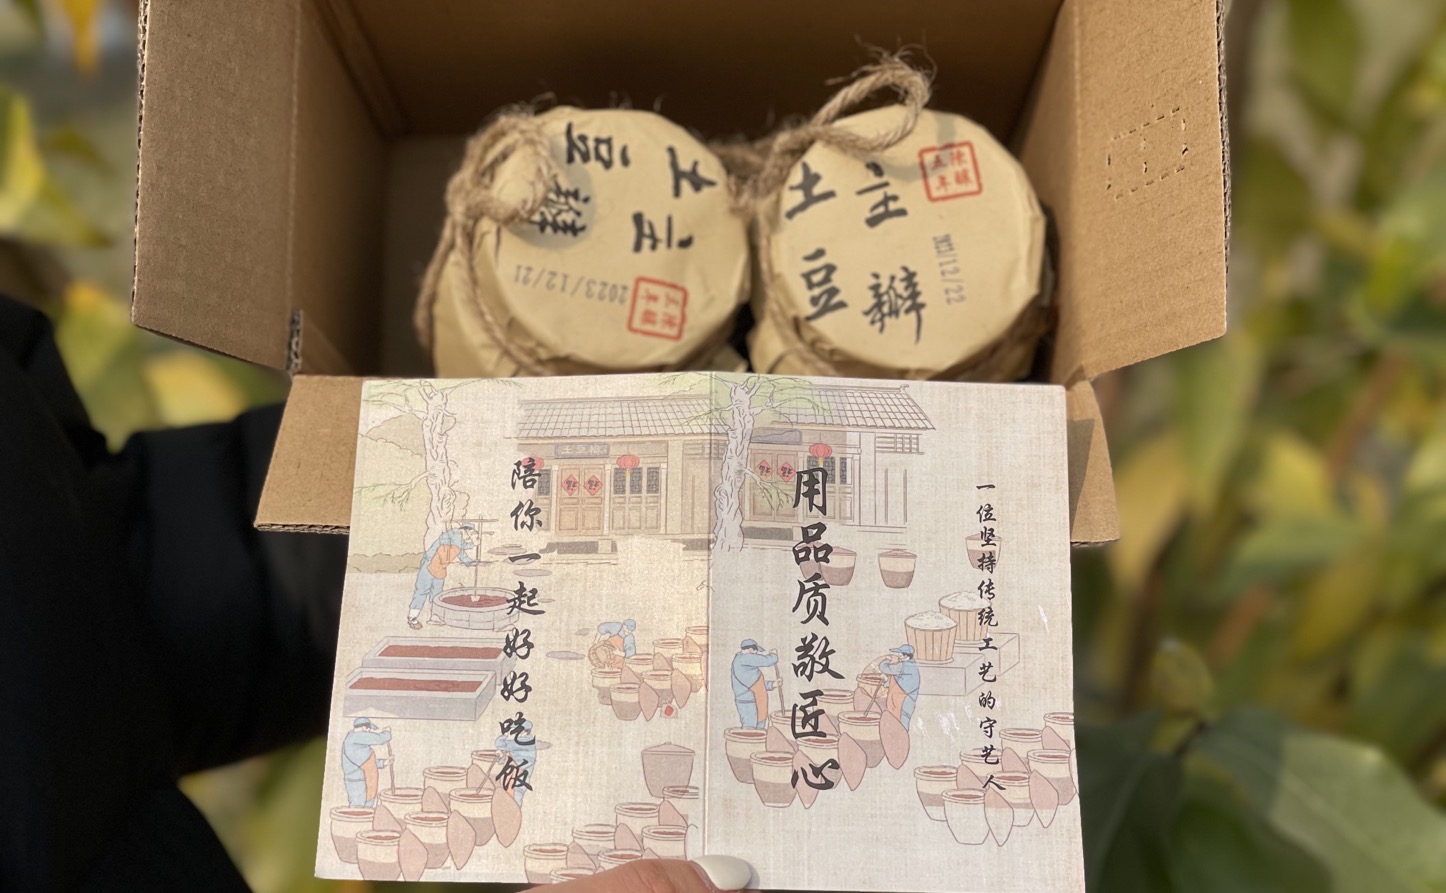 土主
豆瓣
2023/12/21
土主
豆瓣
陈酿
五年
/12/22
陪你一起好好吃饭
用品质敬匠心
一位坚持传统工艺的守艺人